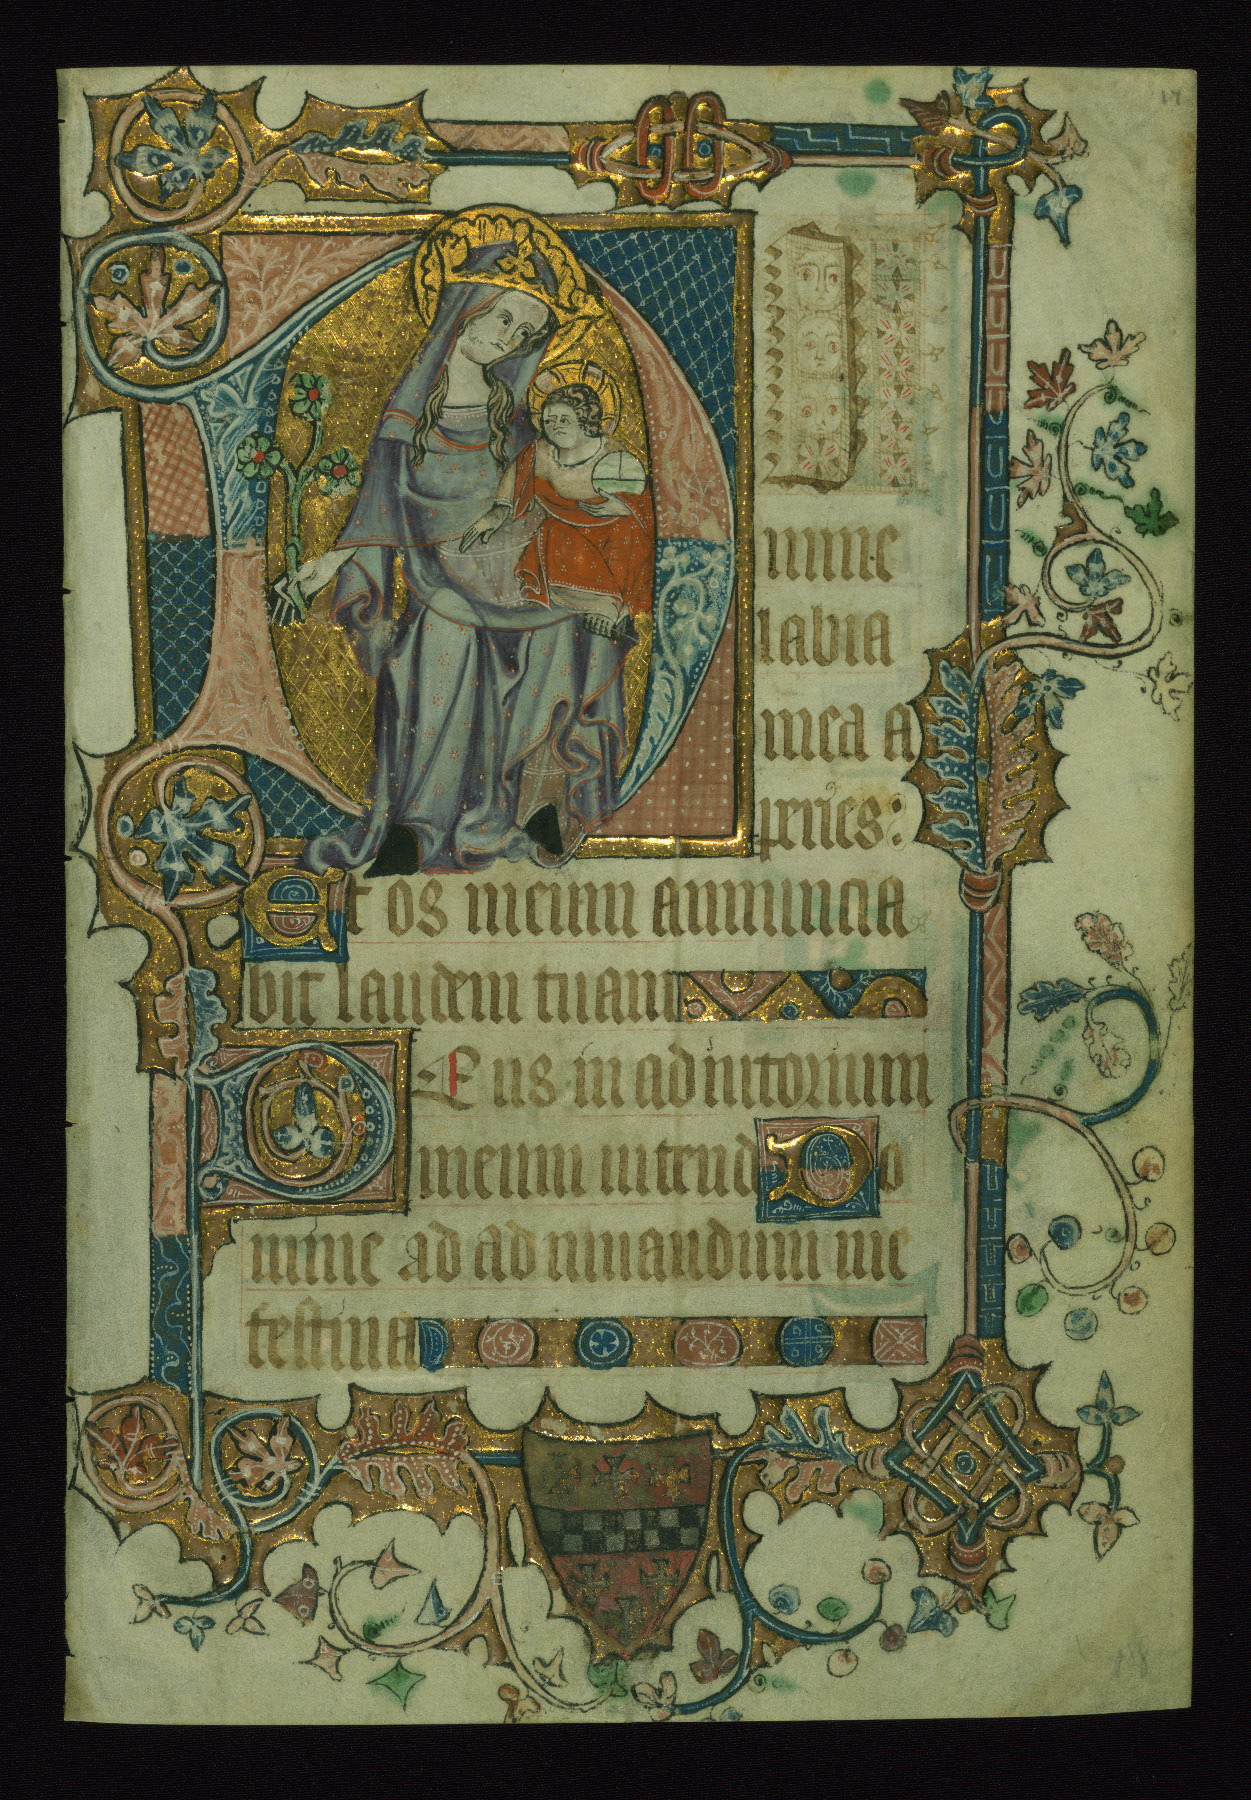 17
D
mine
labia
mea a
peries:
Et os meum annuncia
bit laudem tuam
DEus in adiutorium
meum intende Do
mine ad adiuuandum me
festina